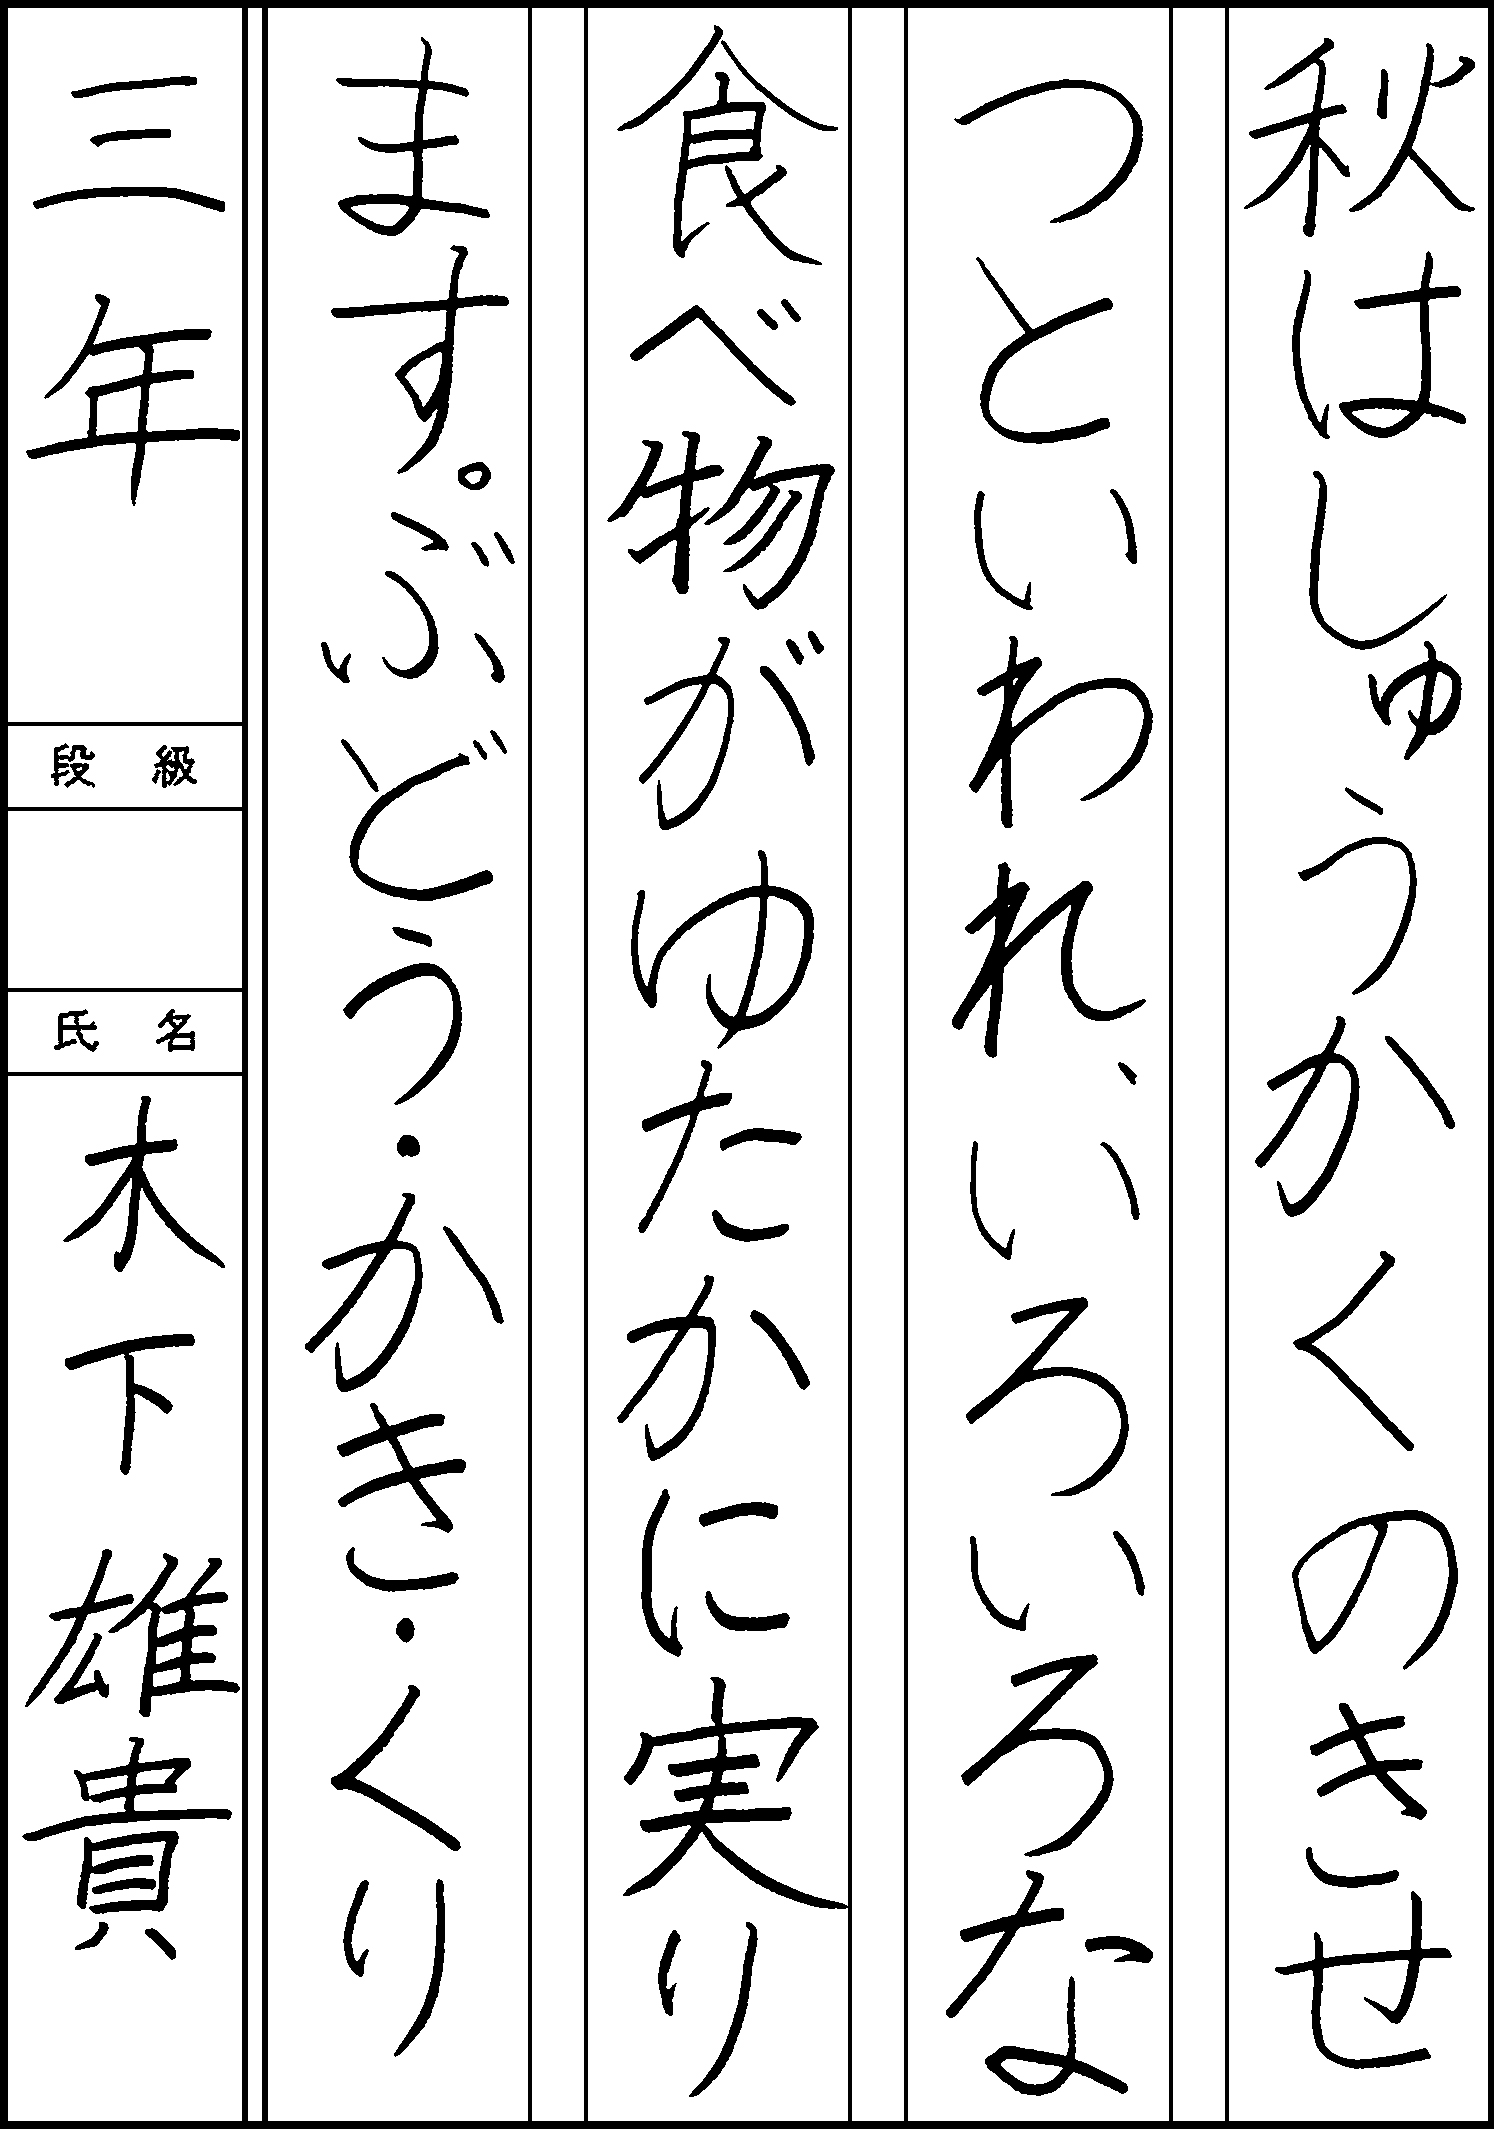 秋はしゅうかくのきせ
つといわれ、いろいろな
食べ物がゆたかに実り
ます。ぶどう・かき・くり
三年
段級
氏名
木下雄貴